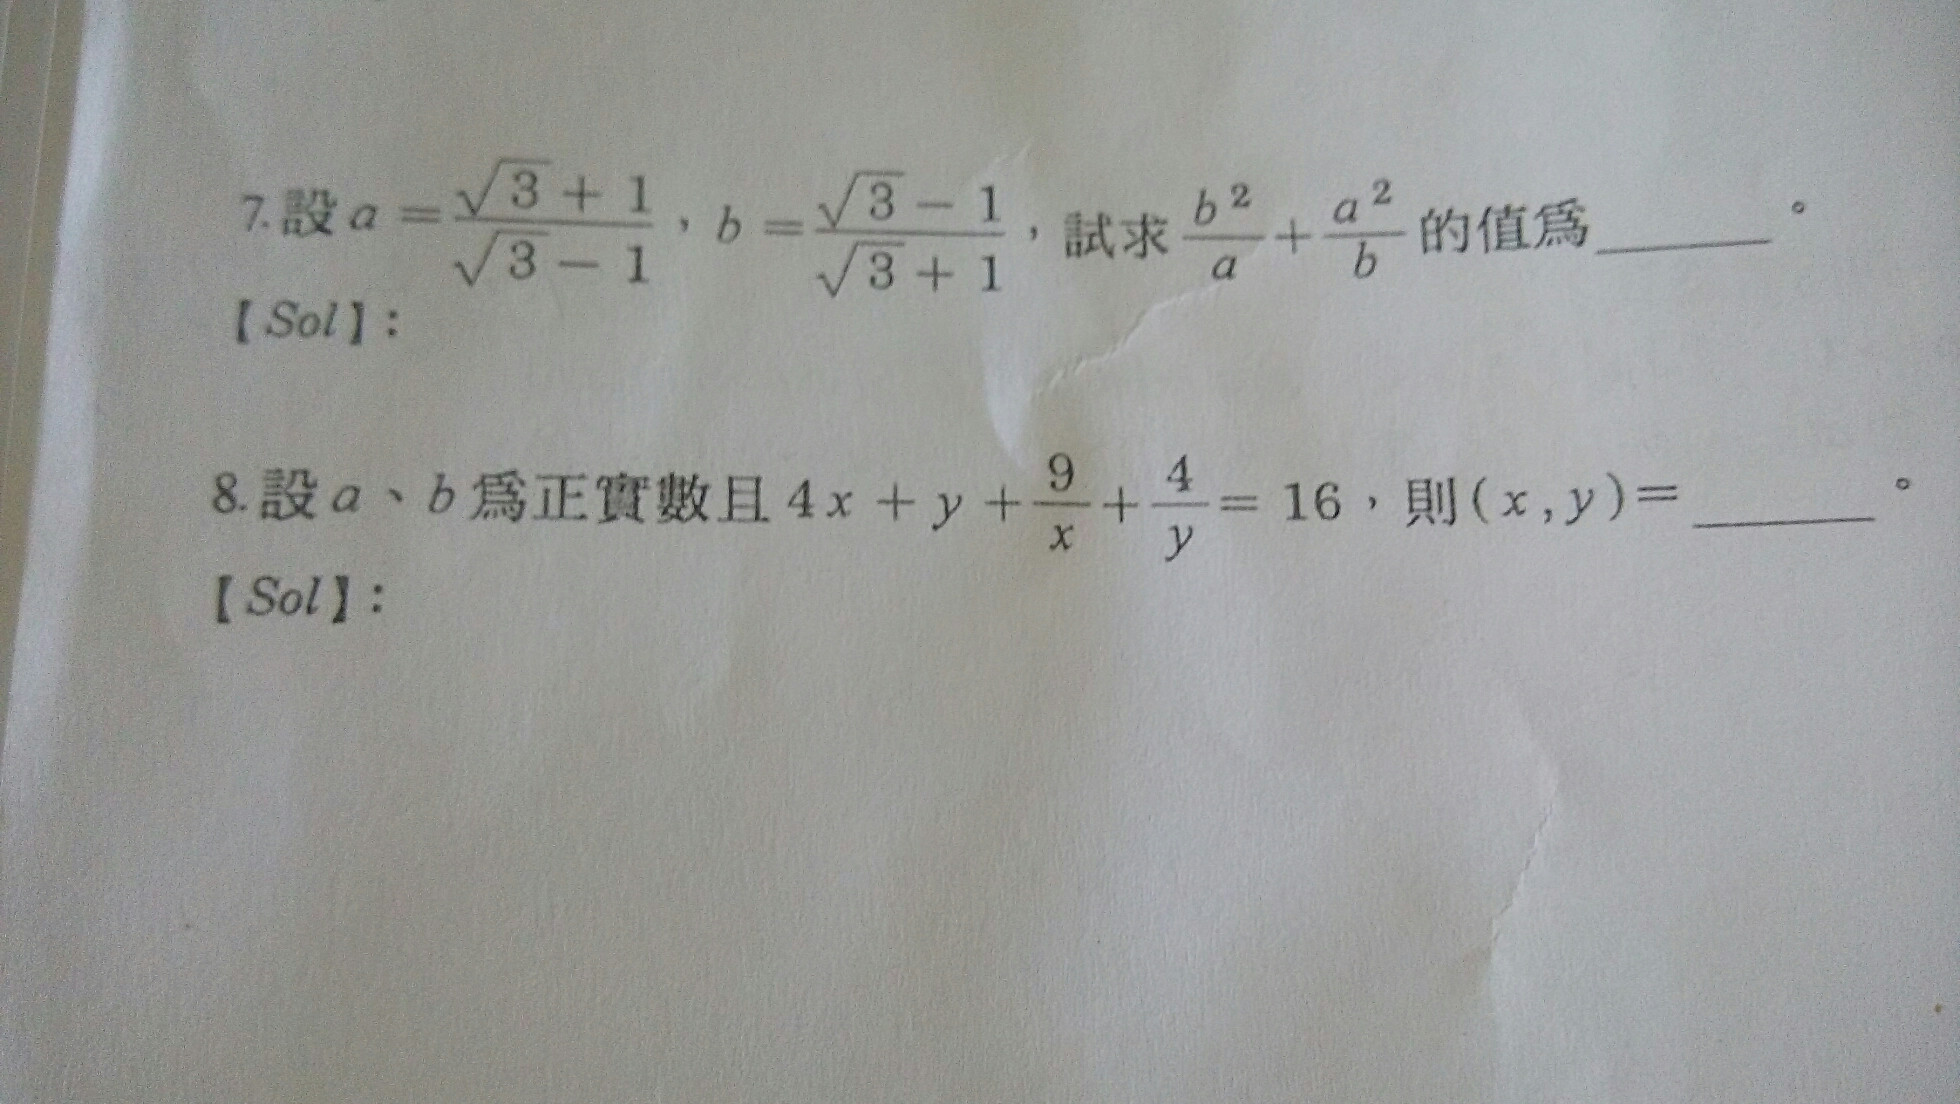 7. 設 a = (√3 + 1)/(√3 − 1)，b = (√3 − 1)/(√3 + 1)，試求 b²/a + a²/b 的值爲______。
【Sol】：
8. 設 a、b 爲正實數且 4x + y + 9/x + 4/y = 16，則(x,y)=______。
【Sol】：